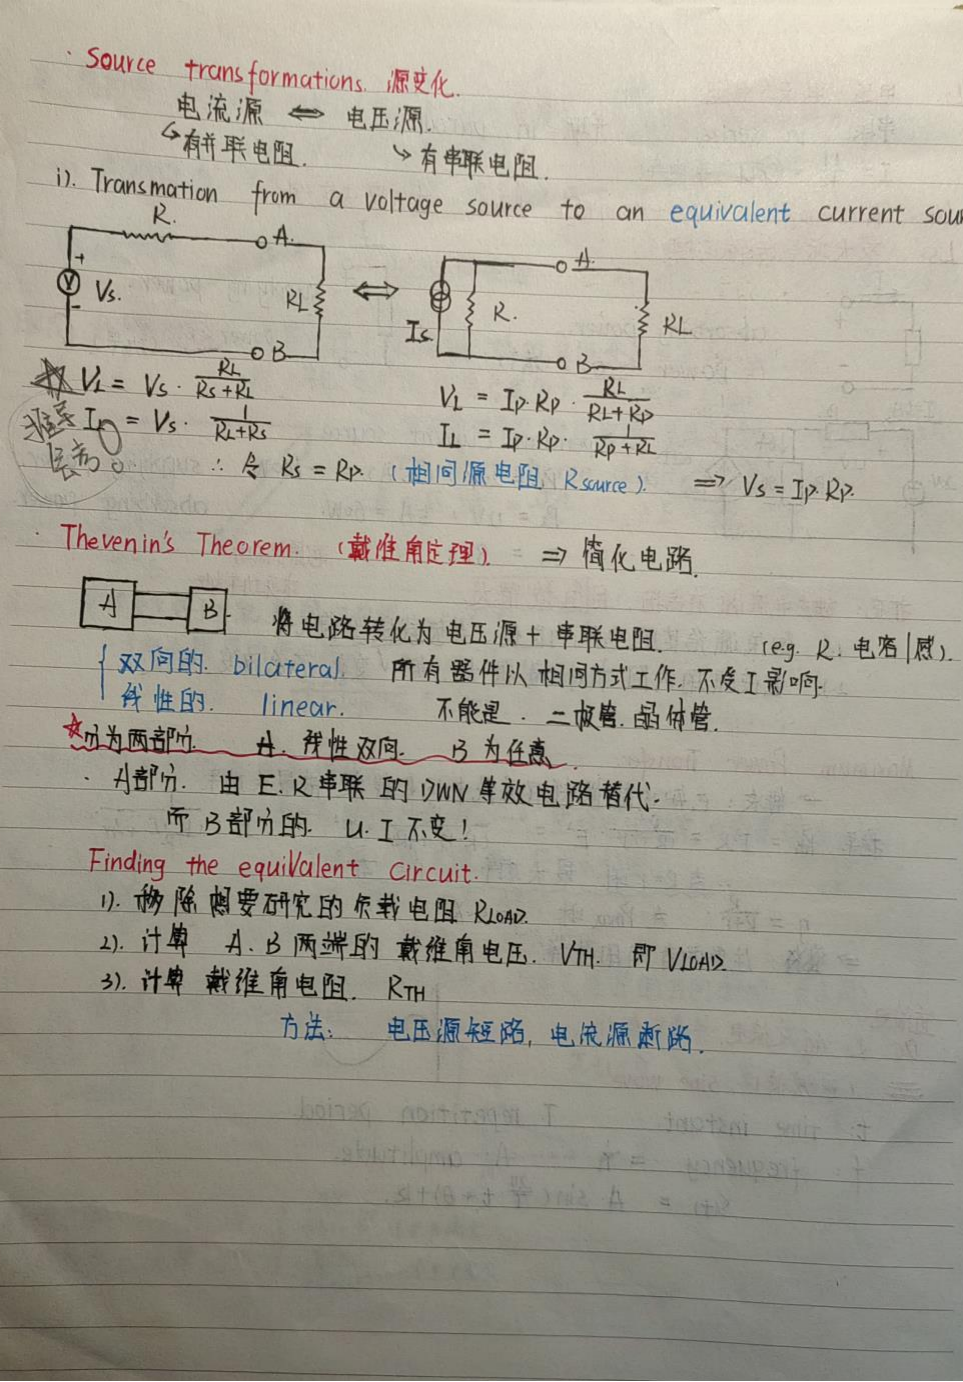 · Source transformations. 源变化.
电流源 ⇔ 电压源.
↳ 有并联电阻. ↳ 有串联电阻.
i). Transmation from a voltage source to an equivalent current sour
R. A. A.
+ Vs. - RL ⇔ Is R. RL
B B
VL = Vs · RL/(Rs+RL) VL = Ip·Rp · RL/(RL+Rp)
= Vs · 1/(RL+Rs) IL = Ip·Rp · 1/(Rp+RL)
∴ 令 Rs = Rp. (相同源电阻 Rsource). ⇒ Vs = Ip·Rp.
· Thevenin's Theorem. (戴维南定理). ⇒ 简化电路.
A B 将电路转化为电压源 + 串联电阻. (e.g. R. 电容|感).
双向的. bilateral. 所有器件以相同方式工作. 不受I影响.
线性的. linear. 不能是. 二极管. 晶体管.
☆分为两部分. A. 线性双向. B 为任意.
· A部分. 由 E. R串联的 DWN 等效电路替代.
而 B部分的. U. I 不变!
Finding the equivalent Circuit.
1). 移除想要研究的负载电阻 RLOAD.
2). 计算 A. B 两端的戴维南电压. VTH. 即 VLOAD.
3). 计算 戴维南电阻. RTH
方法: 电压源短路, 电流源断路.